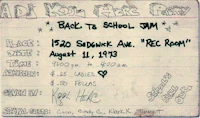 A DJ KOOL HERC PARTY
"BACK TO SCHOOL JAM"
PLACE: 1520 SEDGWICK AVE. "REC ROOM"
DATE: August 11, 1973
TIME: 9:00 pm to 4:00 am
$.25 LADIES
$.50 FELLAS
KOOL HERC
Coco, Cindy C., Klark K., Timmy T